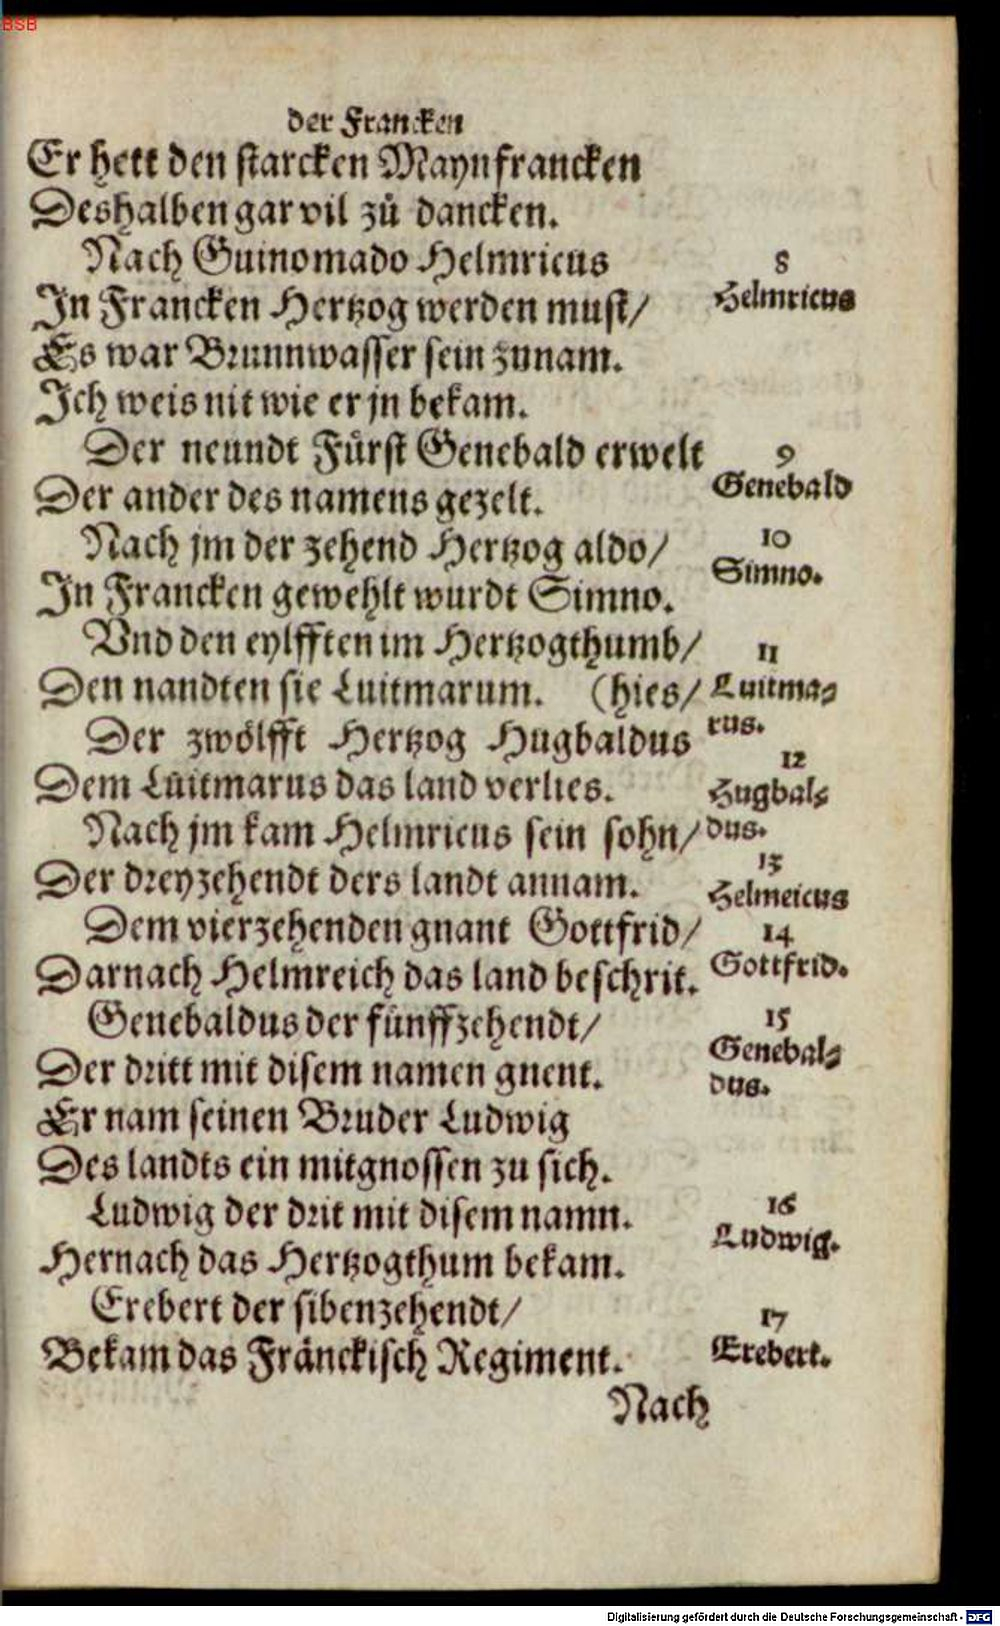 BSB
der Francken
Er hett den starcken Maynfrancken
Deshalben gar vil zů dancken.
Nach Guinomado Helmricus
8
In Francken Hertzog werden must/
Helmricus
Es war Brunnwasser sein zunam.
Ich weis nit wie er jn bekam.
Der neundt Fürst Genebald erwelt
9
Der ander des namens gezelt.
Genebald
Nach jm der zehend Hertzog aldo/
10
In Francken gewehlt wurdt Simno.
Simno.
Vnd den eylfften im Hertzogthumb/
11
Den nandten sie Luitmarum. (hies/
Luitma-
Der zwölfft Hertzog Hugbaldus
rus.
12
Dem Luitmarus das land verlies.
Hugbal-
Nach jm kam Helmricus sein sohn/
dus.
13
Der dreyzehendt ders landt annam.
Helmeicus
Dem vierzehenden gnant Gottfrid/
14
Darnach Helmreich das land beschrit.
Gottfrid.
Genebaldus der fünffzehendt/
15
Genebal-
Der dritt mit disem namen gnent.
dus.
Er nam seinen Bruder Ludwig
Des landts ein mitgnossen zu sich.
Ludwig der drit mit disem namn.
16
Ludwig.
Hernach das Hertzogthum bekam.
Erebert der sibenzehendt/
17
Bekam das Fränckisch Regiment.
Erebert.
Nach
Digitalisierung gefördert durch die Deutsche Forschungsgemeinschaft - DFG